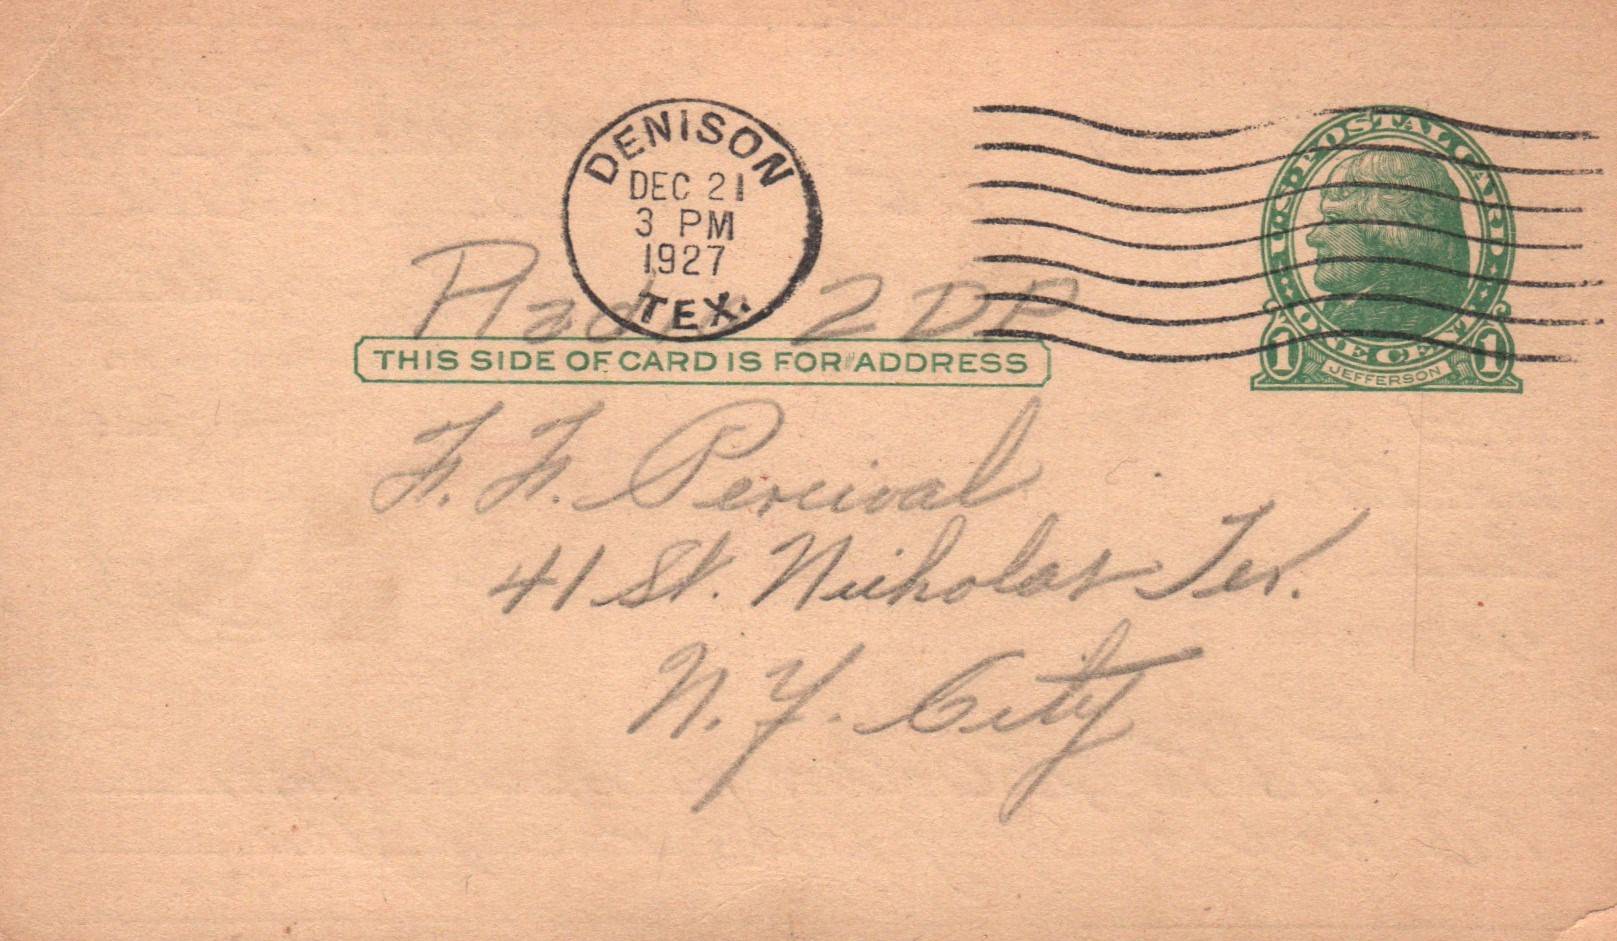 DENISON
DEC 21
3 PM
1927
TEX.
U.S. POSTAL CARD
ONE CENT
1 1
JEFFERSON
Radio 2DP
THIS SIDE OF CARD IS FOR ADDRESS
F. F. Percival
41 St. Nicholas Ter.
N. Y. City